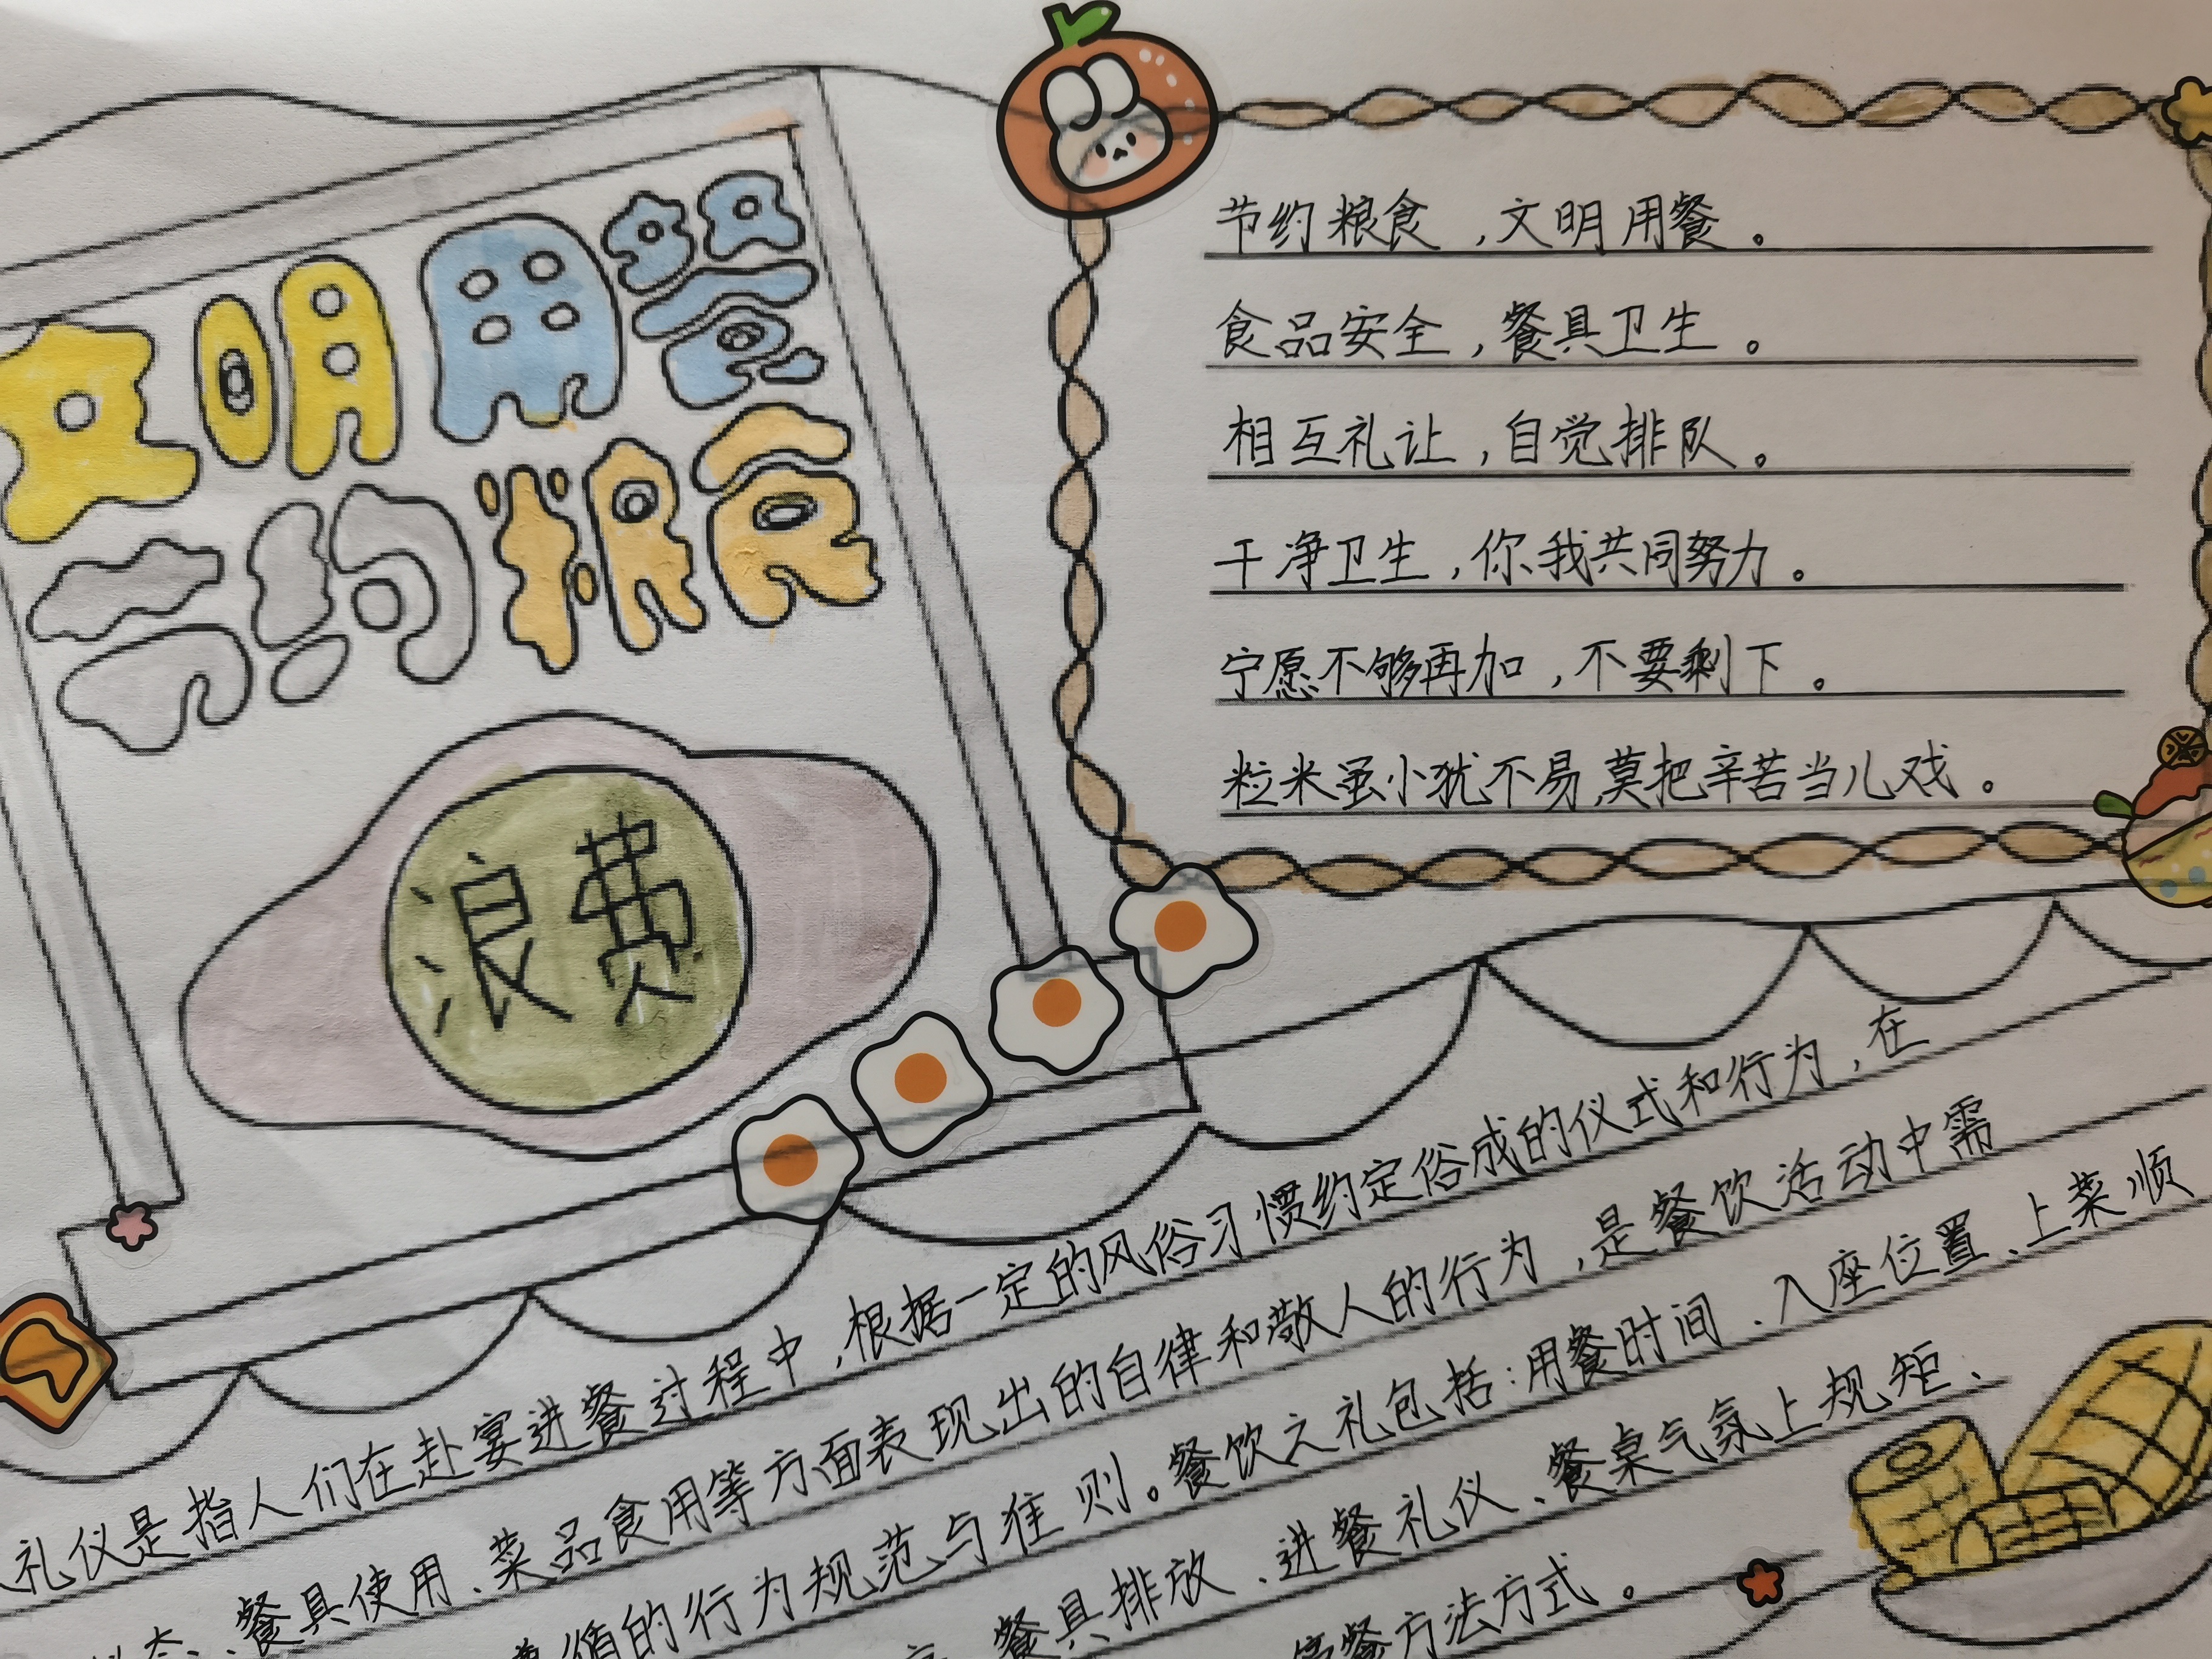 文明用餐
节约粮食
浪费
节约粮食，文明用餐。
食品安全，餐具卫生。
相互礼让，自觉排队。
干净卫生，你我共同努力。
宁愿不够再加，不要剩下。
粒米虽小犹不易，莫把辛苦当儿戏。
礼仪是指人们在赴宴进餐过程中，根据一定的风俗习惯约定俗成的仪式和行为，在
态、餐具使用、菜品食用等方面表现出的自律和敬人的行为，是餐饮活动中需
遵循的行为规范与准则。餐饮之礼包括：用餐时间、入座位置、上菜顺
序、餐具排放、进餐礼仪、餐桌气氛上规矩、
餐方法方式。